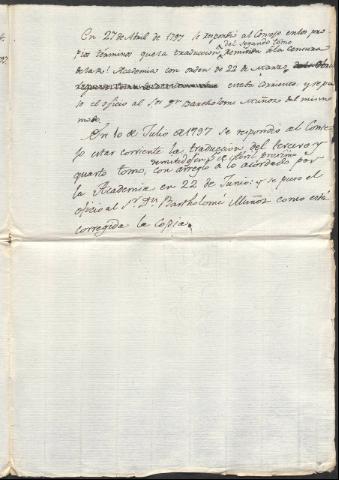 En 27 de Abril de 1797 se respondió al Consejo en los pro-
pios terminos que la traduccion del segundo tomo remitida a la censura
de la Rl. Academia con orden de 22 de Marzo
estaba corriente, y se pu-
so el oficio al Sor. Dn. Bartholome Muñoz del mismo
modo.
En 10 de Julio de 1797 se respondió al Conse-
jo estar corriente la traduccion del tercero y
quarto tomo, remitidos con arreglo a lo acordado por
la Academia en 22 de Junio: y se puso el
oficio al Sr. Dn. Bartholome Muñoz como está
corregida la copia.